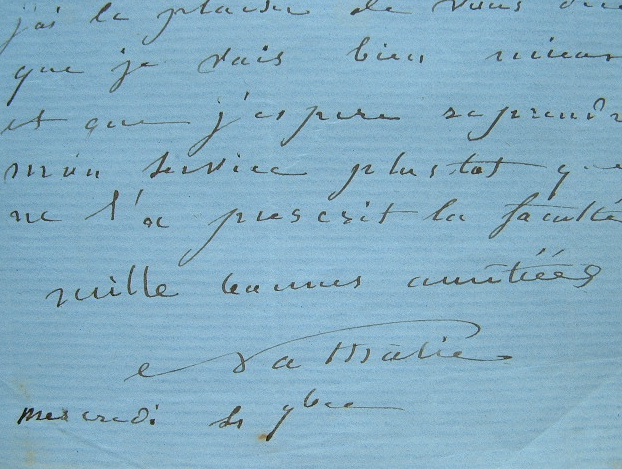 j'ai le plaisir de vous dire
que je vais bien mieux
et que j'espere reprendre
mon service plustot que
ne l'a prescrit la faculté
mille bonnes amitiées
Nathalie
mercredi 9bre